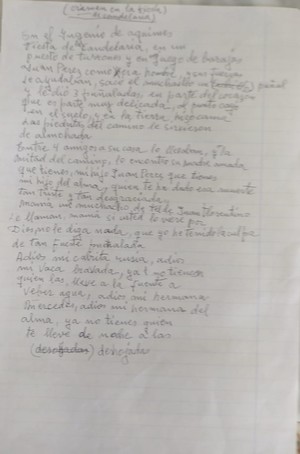 (Crimen en la fiesta
de candelaria)
En el Ingenio de aguimes
Fiesta de Candelaria, en un
puesto de turrones y en juego de barajas
Juan Peres como era hombre, y sus fuerzas
le ayudaban, saco el muchacho un puñal
Y le dió 3 puñaladas, en parte del corazón
que es parte muy delicada, al punto cayó
en el suelo, y en la tierra hizo cama
Las piedras del camino le sirvieron
de almohada
Entre 4 amigos a su casa lo llevaban, y a la
mitad del camino, lo encontro su madre amada
que tienes, mi hijo Juan Peres que tienes
mi hijo del alma, quien te ha dado esa muerte
tan triste y tan desgraciada,
mamá un muchacho de Telde Juan Florentino
le llaman, mamá si usted lo viese por
Dios, no le diga nada, que yo he tenido la culpa
de tan fuerte puñalada
Adios mi cabrita rusia, adios
mi vaca bragada, ya no tienes
quien las lleve a la fuente a
veber agua, adios mi hermana
Mercedes, adios mi hermana del
alma, ya no tienes quien
te lleve de noche a las
(desojadas) deshojadas